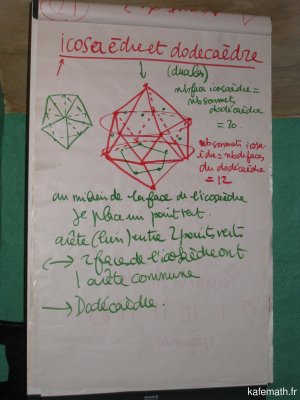 21
icosaèdre et dodécaèdre
(duals)
nb faces icosaèdre =
nb sommets
dodécaèdre
= 20.
nb sommets icosa-
èdre = nb de faces
du dodécaèdre
= 12
au milieu de la face de l'icosaèdre
je place un point vert.
arête (lien) entre 2 points verts
⟷ 2 faces de l'icosaèdre ont
1 arête commune
→ Dodécaèdre.
kafemath.fr